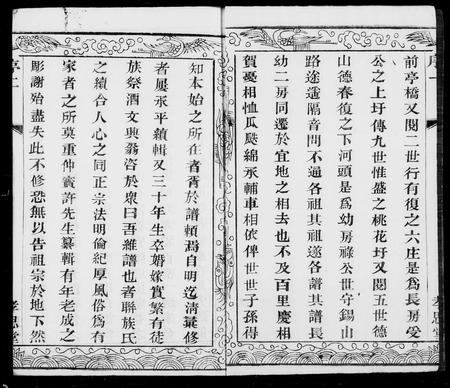 前亭橋又閱二世行有復之六庄是爲長房受
公之上圩傳九世惟盛之桃花圩又閱五世德
山德春復之下河頭是爲幼房祿公世守錫山
路途遥隔音問不通各祖其祖遂各譜其譜長
幼二房同遷於宜地之相去也不及百里慶相
賀憂相恤瓜瓞綿永輔車相依俾世世子孫得
知本始之所在者胥於譜賴焉自明迄淸纂修
者屢永平續輯又三十年生卒婚嫁實繁有徒
族祭酒文輿翁咨於衆曰吾維譜也者聯族氏
之續合人心之同正宗法明倫紀厚風俗爲有
家者之所莫重仲賓許先生纂輯有年老成之
彫謝殆盡失此不修恐無以吿祖宗於地下然
孝思堂
序二
孝思堂